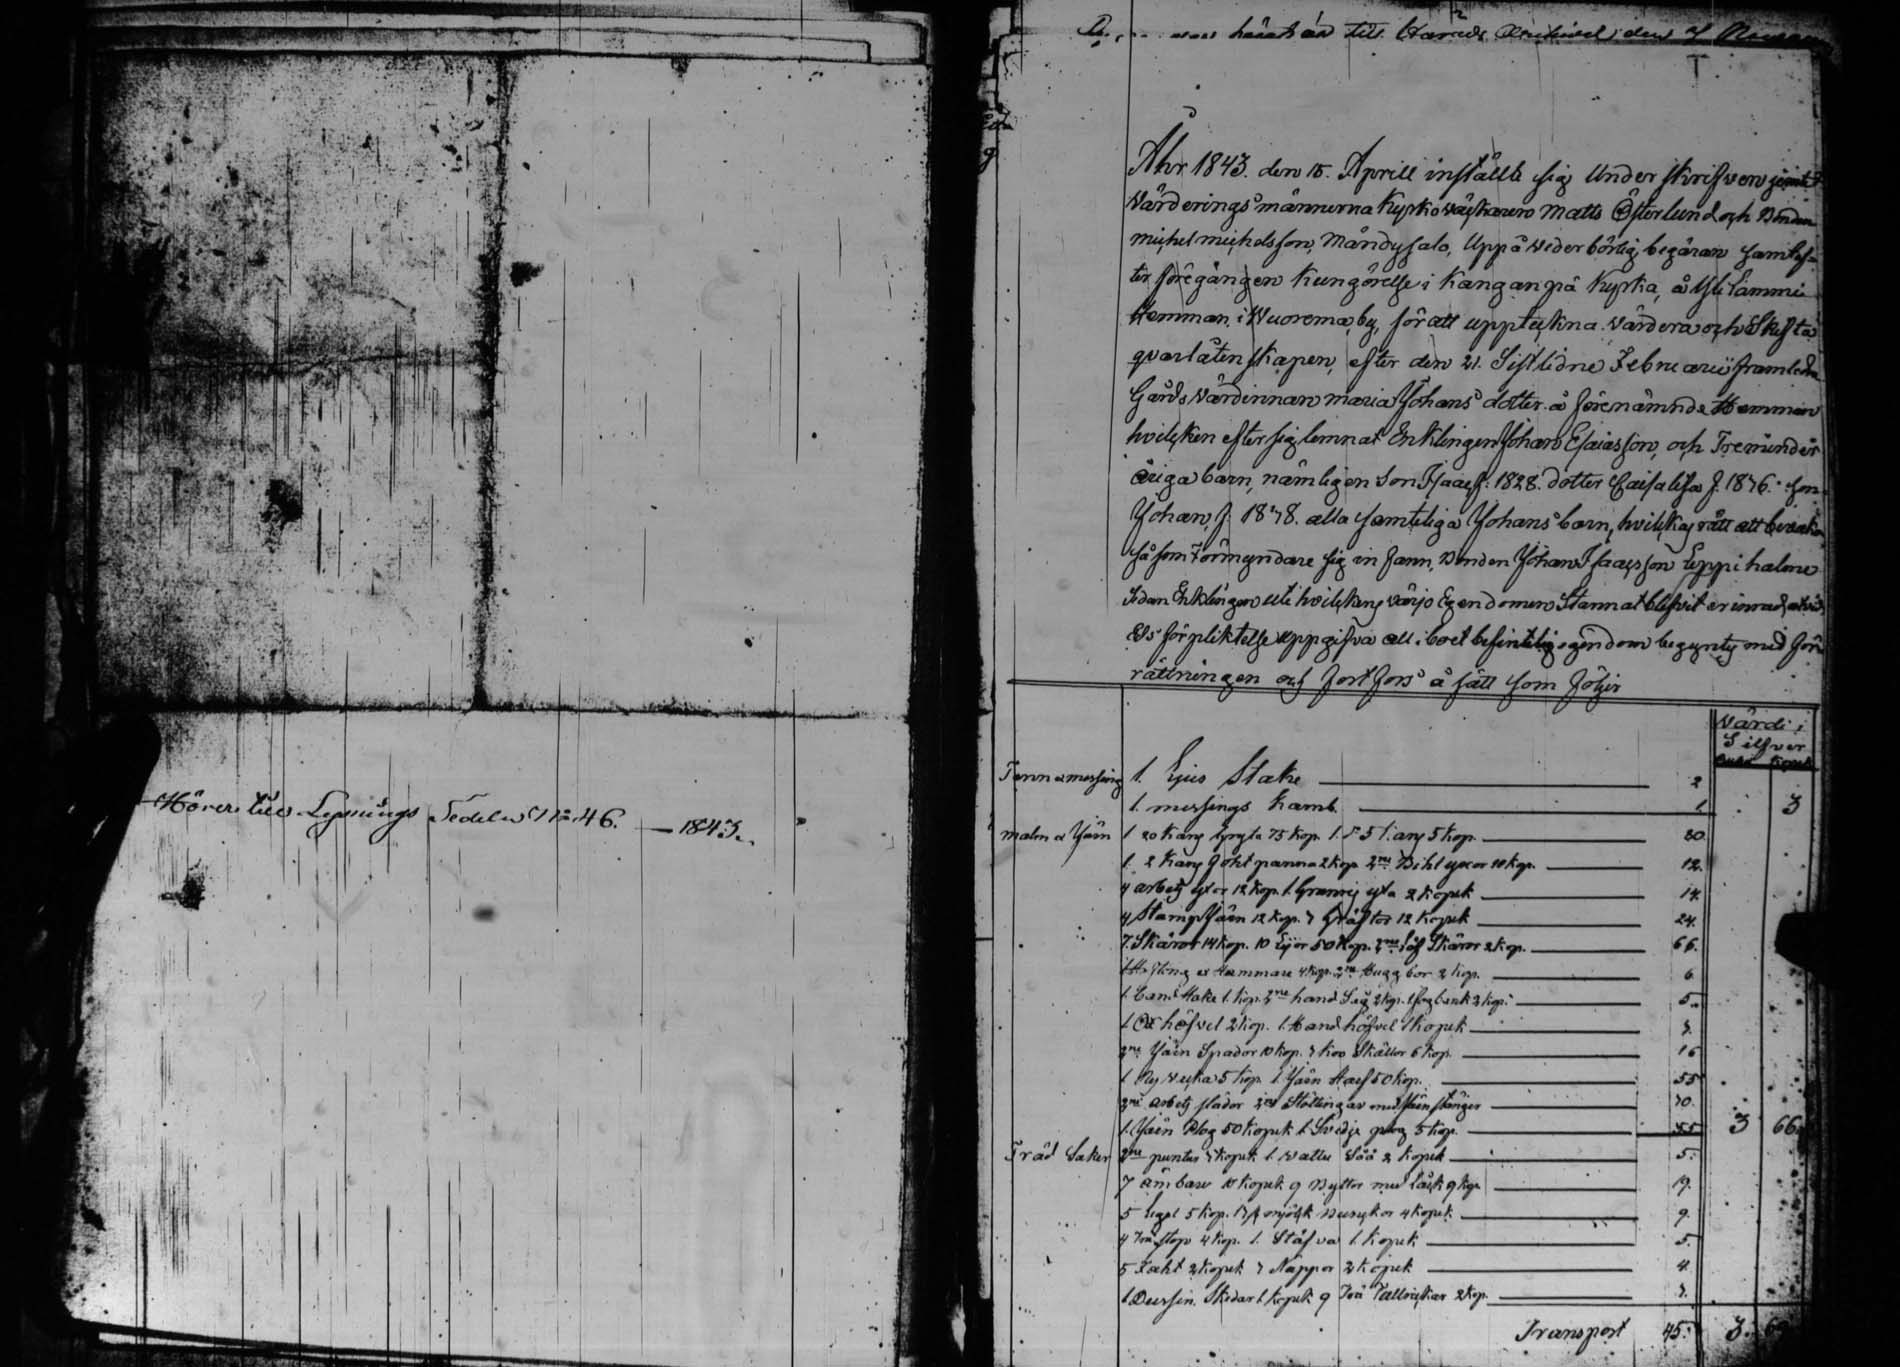 Hörer till Lysnings Sedeln No 46. — 1843.
till Härads den
Åhr 1843. den 15. Aprill inställte sig Underskrifven jemte
Värderings männerna Kyrkoväktaren Matts Österlund och Bonden
Michel Michelsson Måndysalo, Uppå vederbörlig begäran samt ef-
ter föregången Kungörelse i Kanganpä Kyrka, å Yli Lammi
Hemman i Wuorema by, för att uppteckna värdera och Skifta
qvarlåtenskapen, efter den 21. Sistlidne Februarii framledne
Gårds Värdinnan Maria Johans dotter å förenämnde Hemman
hvilken efter sig lemnat Enklingen Johan Esaiasson, och Tre minder
åriga barn, nämligen Son Isaac f. 1828. dotter Caisa Lisa f. 1836. Son
Johan f. 1838. alla samteliga Johans barn, hvilkas rätt att bevaka
såsom Förmyndare sig in fann, Bonden Johan Isaacsson Leppihalme
Sedan Enklingen uti hvilkens värjo Egendomen Stannat blifvit erinrad at vid
Eds förpliktelse uppgifva all i boet befintelig egendom begyntes med för
rättningen och fortfors å sätt som följer
Värde i
Silfver
Rub Kopek
Tenn & messing 1. Ljus Stake 2
1. messings Kamb. 1. . 3
malm & Järn 1 20 Kans Gryta 75 Kop. 1. D:o 5 Kans 5 Kop. 80
1. 2 Kans panna 2 Kop. 2ne Bihl yxor 10 Kop. 12.
4 arbets yxor 12 Kop. 1. yxa 2 Kopek 14.
4 Stamp Järn 12 Kop. 3 Gräftor 12 Kopek 24.
7. Skäror 14 Kop. 10 Lijor 50 Kop. 2ne Löf Skäror 2 Kop. 66.
1. Hof Tong & Hammare 4 Kop. 2ne 2 Kop. 6
1. Band Hake 1. Kop. 2ne hand Såg 2 Kop. 2 Kop. 5.
1. Ox höfvel 2 Kop. 1. Hand höfvel 1 Kopek 3.
2ne Järn Spador 10 Kop. 3 Koo Skällor 6 Kop. 16
1. 5 Kop. 1 Järn 50 Kop. 55
2ne arbets slädor 2ne Stöttingar med Järn stänger 70.
1. Järn Plog 50 Kopek 1. Svedje plog 5 Kop. 55 3 66
Träd Saker 2ne 3 Kopek 1. Watte Såå 2 Kopek 5.
7 ämbare 10 Kopek 9 Byttor med låck 9 Kop. 19.
5 5 Kop. mjölk 4 Kopek 9.
4 Trä stop 4 Kop. 1. Stäfva 1. Kopek 5.
5 Faht 2 Kopek 3 Nappor 2 Kopek 4.
1. Dussin Skedar 1. Kopek 9 Trä Tallrickar 2 Kop. 3.
Transport 45. 3. 69